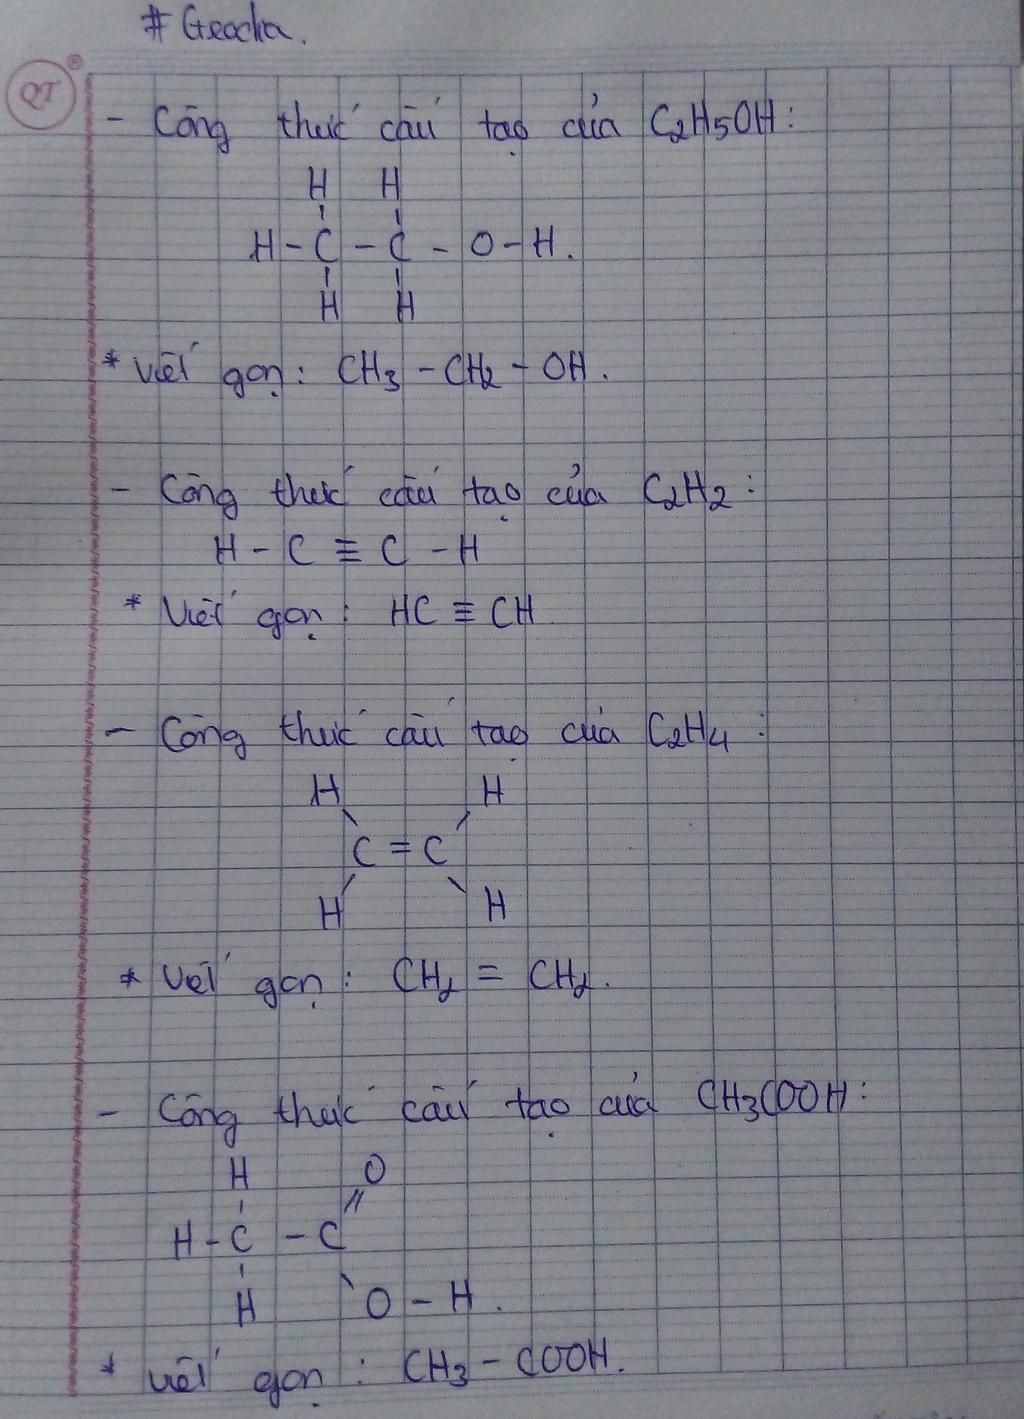 # Geodia.
QT
- Công thức cấu tạo của C2H5OH:
H H
H - C - C - O - H.
H H
* Viết gọn: CH3 - CH2 - OH.
- Công thức cấu tạo của C2H2:
H - C ≡ C - H
* Viết gọn: HC ≡ CH
- Công thức cấu tạo của C2H4:
H H
C = C
H H
* Viết gọn: CH2 = CH2.
- Công thức cấu tạo của CH3COOH:
H O
H - C - C
H O - H.
* Viết gọn: CH3 - COOH.